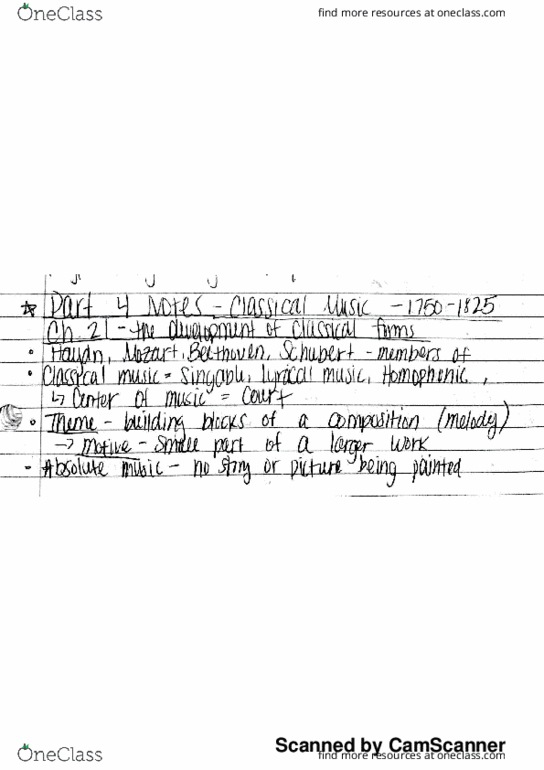 OneClass find more resources at oneclass.com
☆ Part 4 Notes - Classical Music - 1750-1825
Ch. 21 - the development of Classical forms
• Haydn, Mozart, Beethoven, Schubert - members of
• Classical music = Singable, Lyrical music, Homophonic,
↳ Center of music = Court
• Theme - building blocks of a composition (melody)
→ Motive - Small part of a larger work
• Absolute music - no story or picture being painted
Scanned by CamScanner
OneClass find more resources at oneclass.com